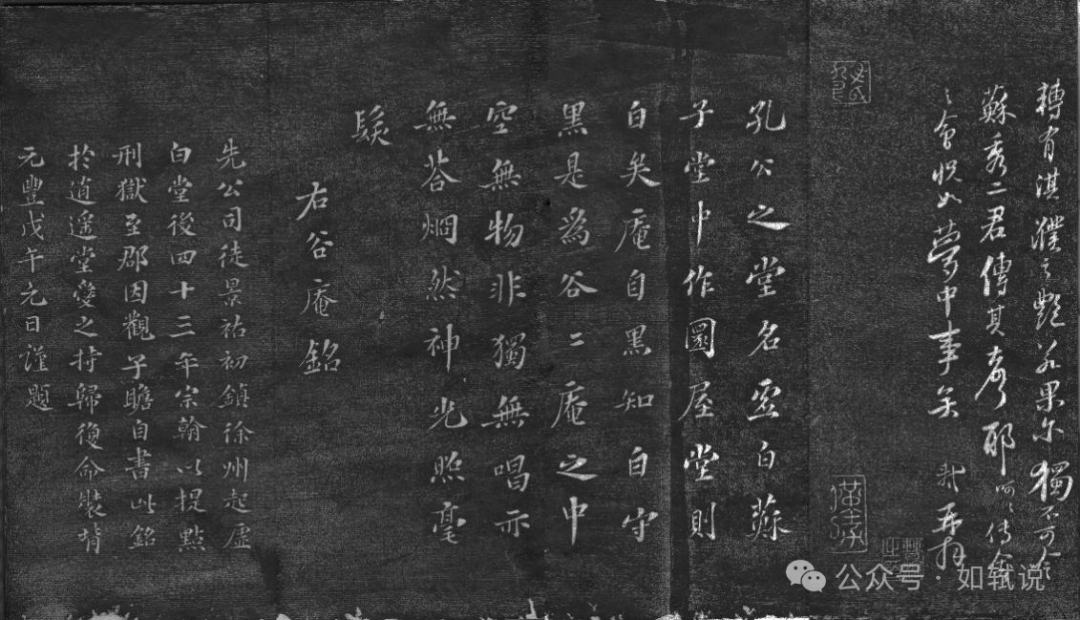 轉有淇濮之艷若果尔獨不可令
蘇秀二君傳其彥耶呵〻傳舍
〻會怳如夢中事矣 軾再拜
孔公之堂名虛白蘇
子堂中作圜屋堂則
白矣庵自黑知白守
黑是為谷〻庵之中
空無物非獨無唱亦
無荅烱然神光照毫
髮
右谷庵銘
先公司徒景祐初鎮徐州起虛
白堂後四十三年宗翰以提點
刑獄至郡因觀子瞻自書此銘
於逍遙堂愛之持歸復命裝褙
元豐戊午元日謹題
公众号·如轼说